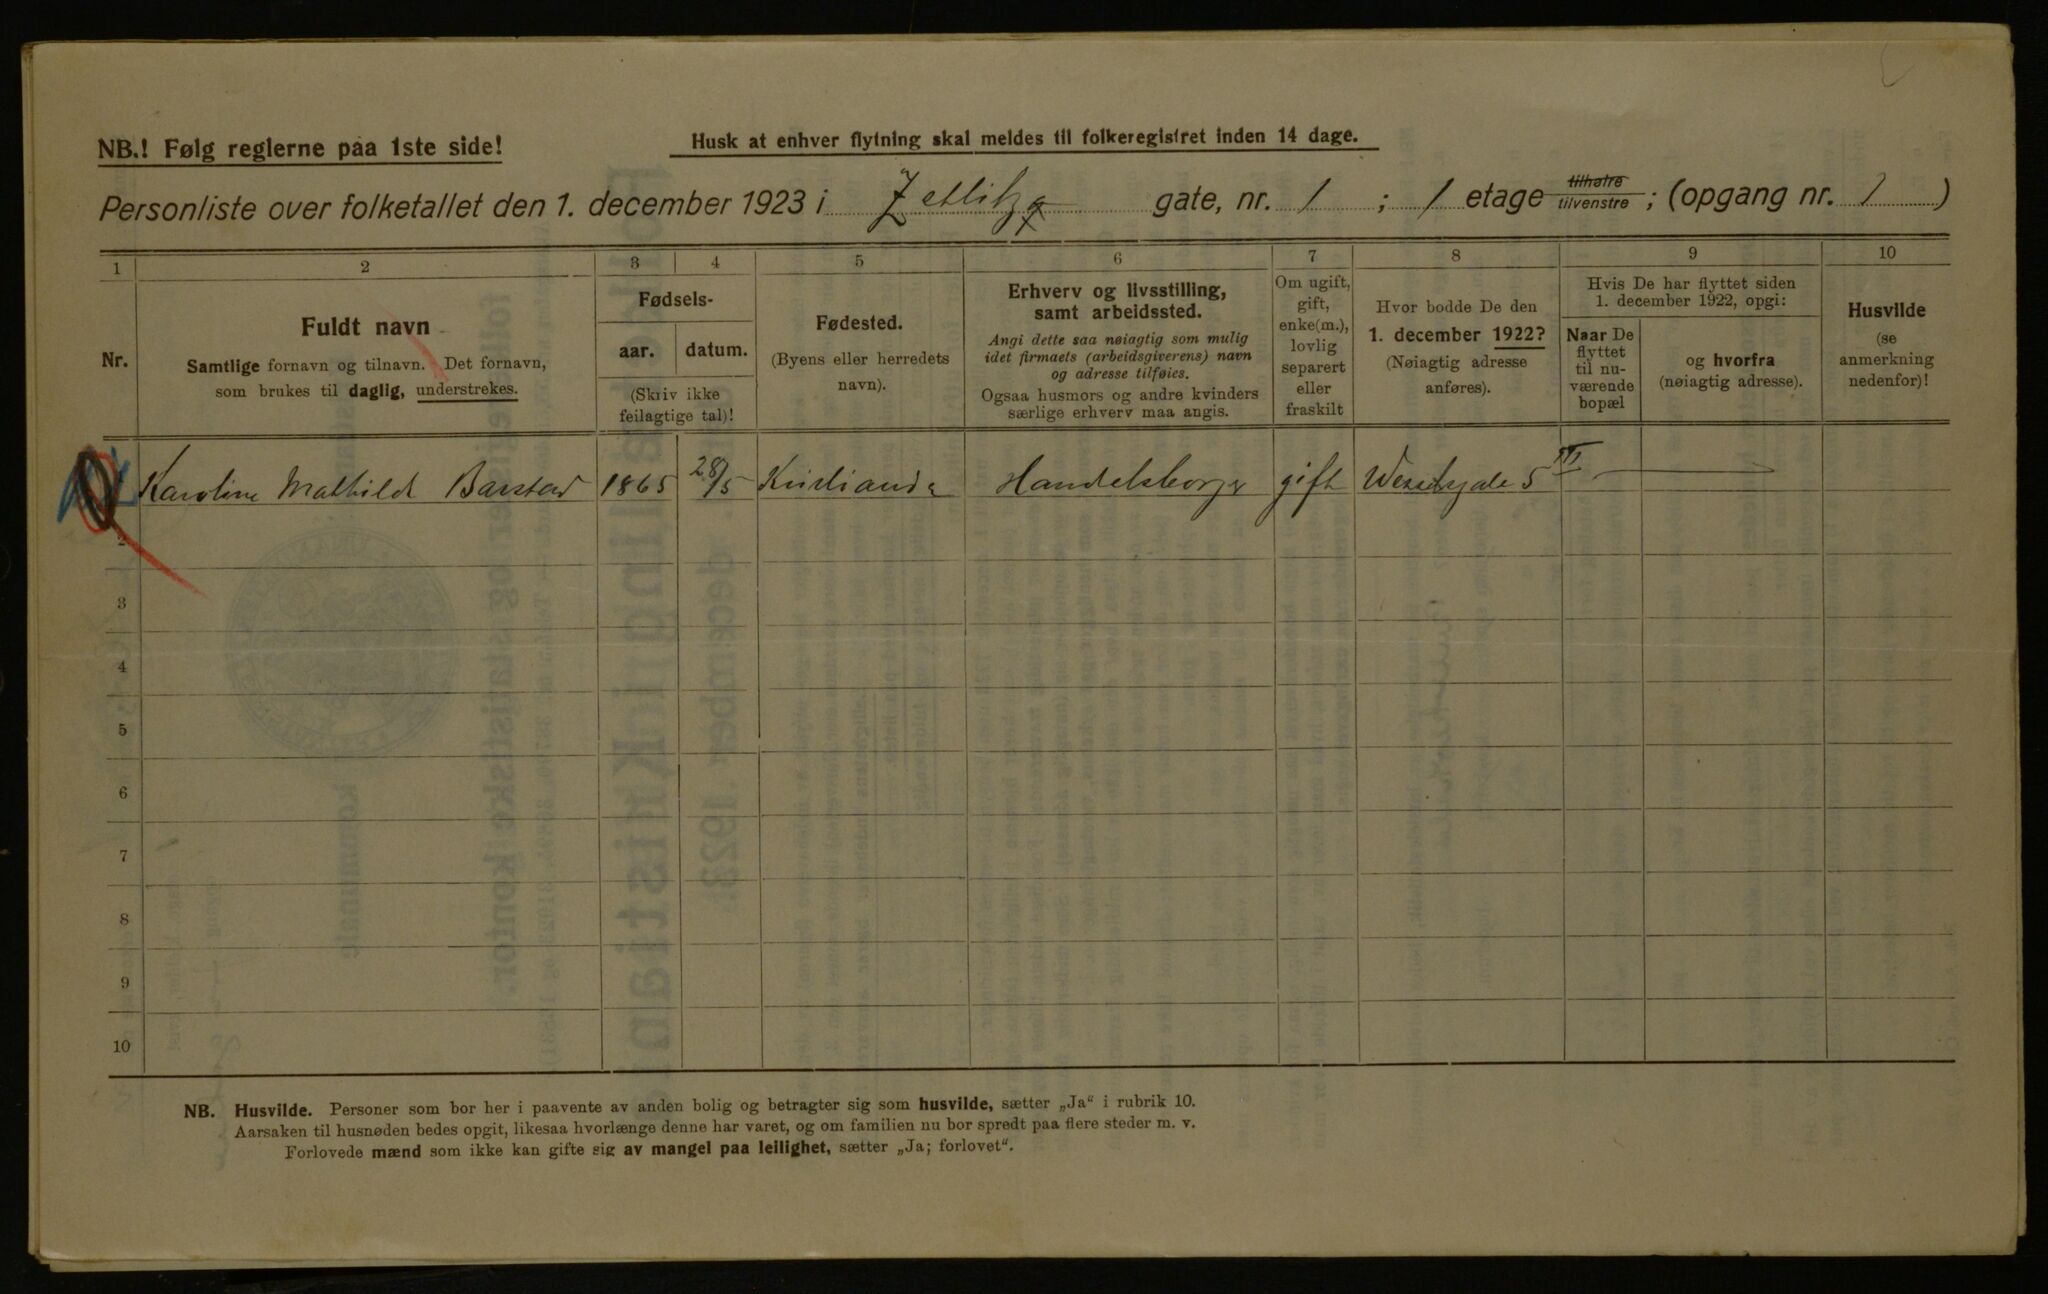 NB.! Følg reglerne paa 1ste side!
Husk at enhver flytning skal meldes til folkeregistret inden 14 dage.
Personliste over folketallet den 1. december 1923 i Zetlitz gate, nr. 1 ; 1 etage tilhøire tilvenstre ; (opgang nr. 1 )
1 2 3 4 5 6 7 8 9 10
Nr.
Fuldt navn
Samtlige fornavn og tilnavn. Det fornavn,
som brukes til daglig, understrekes.
Fødsels-
aar. datum.
(Skriv ikke
feilagtige tal)!
Fødested.
(Byens eller herredets
navn).
Erhverv og livsstilling,
samt arbeidssted.
Angi dette saa nøiagtig som mulig
idet firmaets (arbeidsgiverens) navn
og adresse tilføies.
Ogsaa husmors og andre kvinders
særlige erhverv maa angis.
Om ugift,
gift,
enke(m.),
lovlig
separert
eller
fraskilt
Hvor bodde De den
1. december 1922?
(Nøiagtig adresse
anføres).
Hvis De har flyttet siden
1. december 1922, opgi:
Naar De
flyttet
til nu-
værende
bopæl
og hvorfra
(nøiagtig adresse).
Husvilde
(se
anmerkning
nedenfor)!
Karoline Mathilde Barstad 1865 28/5 Kristiania Handelsborger gift Wesselsgate 5 III
2
3
4
5
6
7
8
9
10
NB. Husvilde. Personer som bor her i paavente av anden bolig og betragter sig som husvilde, sætter „Ja“ i rubrik 10.
Aarsaken til husnøden bedes opgit, likesaa hvorlænge denne har varet, og om familien nu bor spredt paa flere steder m. v.
Forlovede mænd som ikke kan gifte sig av mangel paa leilighet, sætter „Ja; forlovet“.